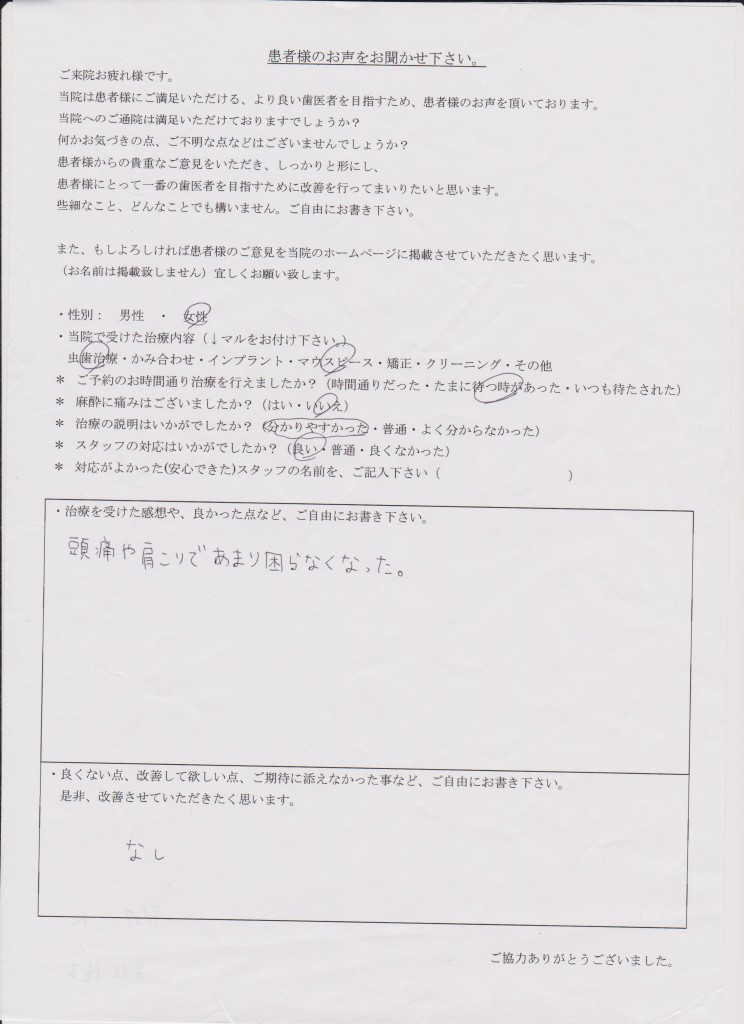 患者様のお声をお聞かせ下さい。
ご来院お疲れ様です。
当院は患者様にご満足いただける、より良い歯医者を目指すため、患者様のお声を頂いております。
当院へのご通院は満足いただけておりますでしょうか？
何かお気づきの点、ご不明な点などはございませんでしょうか？
患者様からの貴重なご意見をいただき、しっかりと形にし、
患者様にとって一番の歯医者を目指すために改善を行ってまいりたいと思います。
些細なこと、どんなことでも構いません。ご自由にお書き下さい。
また、もしよろしければ患者様のご意見を当院のホームページに掲載させていただきたく思います。
（お名前は掲載致しません）宜しくお願い致します。
・性別： 男性 ・ 女性
・当院で受けた治療内容（↓マルをお付け下さい。）
虫歯治療・かみ合わせ・インプラント・マウスピース・矯正・クリーニング・その他
＊ ご予約のお時間通り治療を行えましたか？（時間通りだった・たまに待つ時があった・いつも待たされた）
＊ 麻酔に痛みはございましたか？（はい・いいえ）
＊ 治療の説明はいかがでしたか？（分かりやすかった・普通・よく分からなかった）
＊ スタッフの対応はいかがでしたか？（良い・普通・良くなかった）
＊ 対応がよかった(安心できた)スタッフの名前を、ご記入下さい（ ）
・治療を受けた感想や、良かった点など、ご自由にお書き下さい。
頭痛や肩こりであまり困らなくなった。
・良くない点、改善して欲しい点、ご期待に添えなかった事など、ご自由にお書き下さい。
是非、改善させていただきたく思います。
なし
ご協力ありがとうございました。